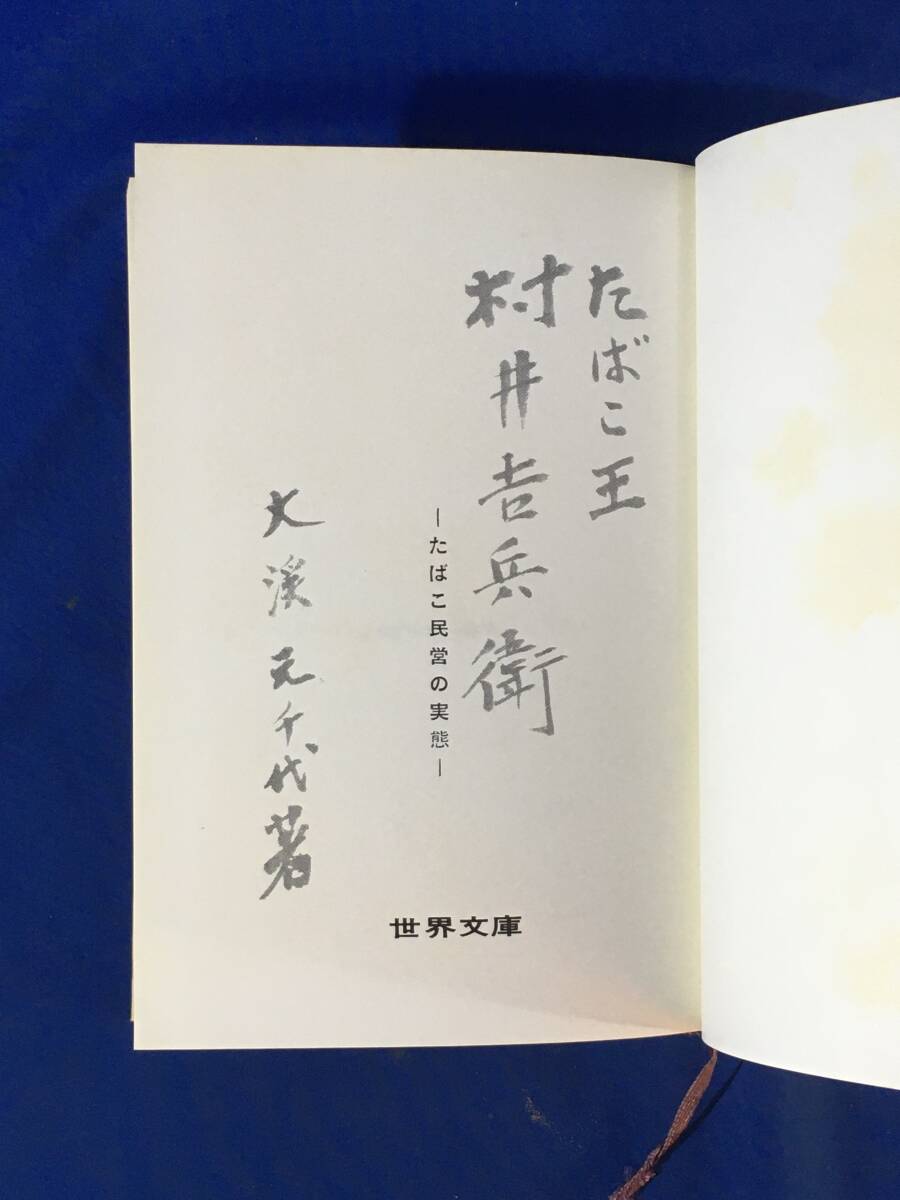 たばこ王
村井吉兵衛
―たばこ民営の実態―
大溪元千代著
世界文庫